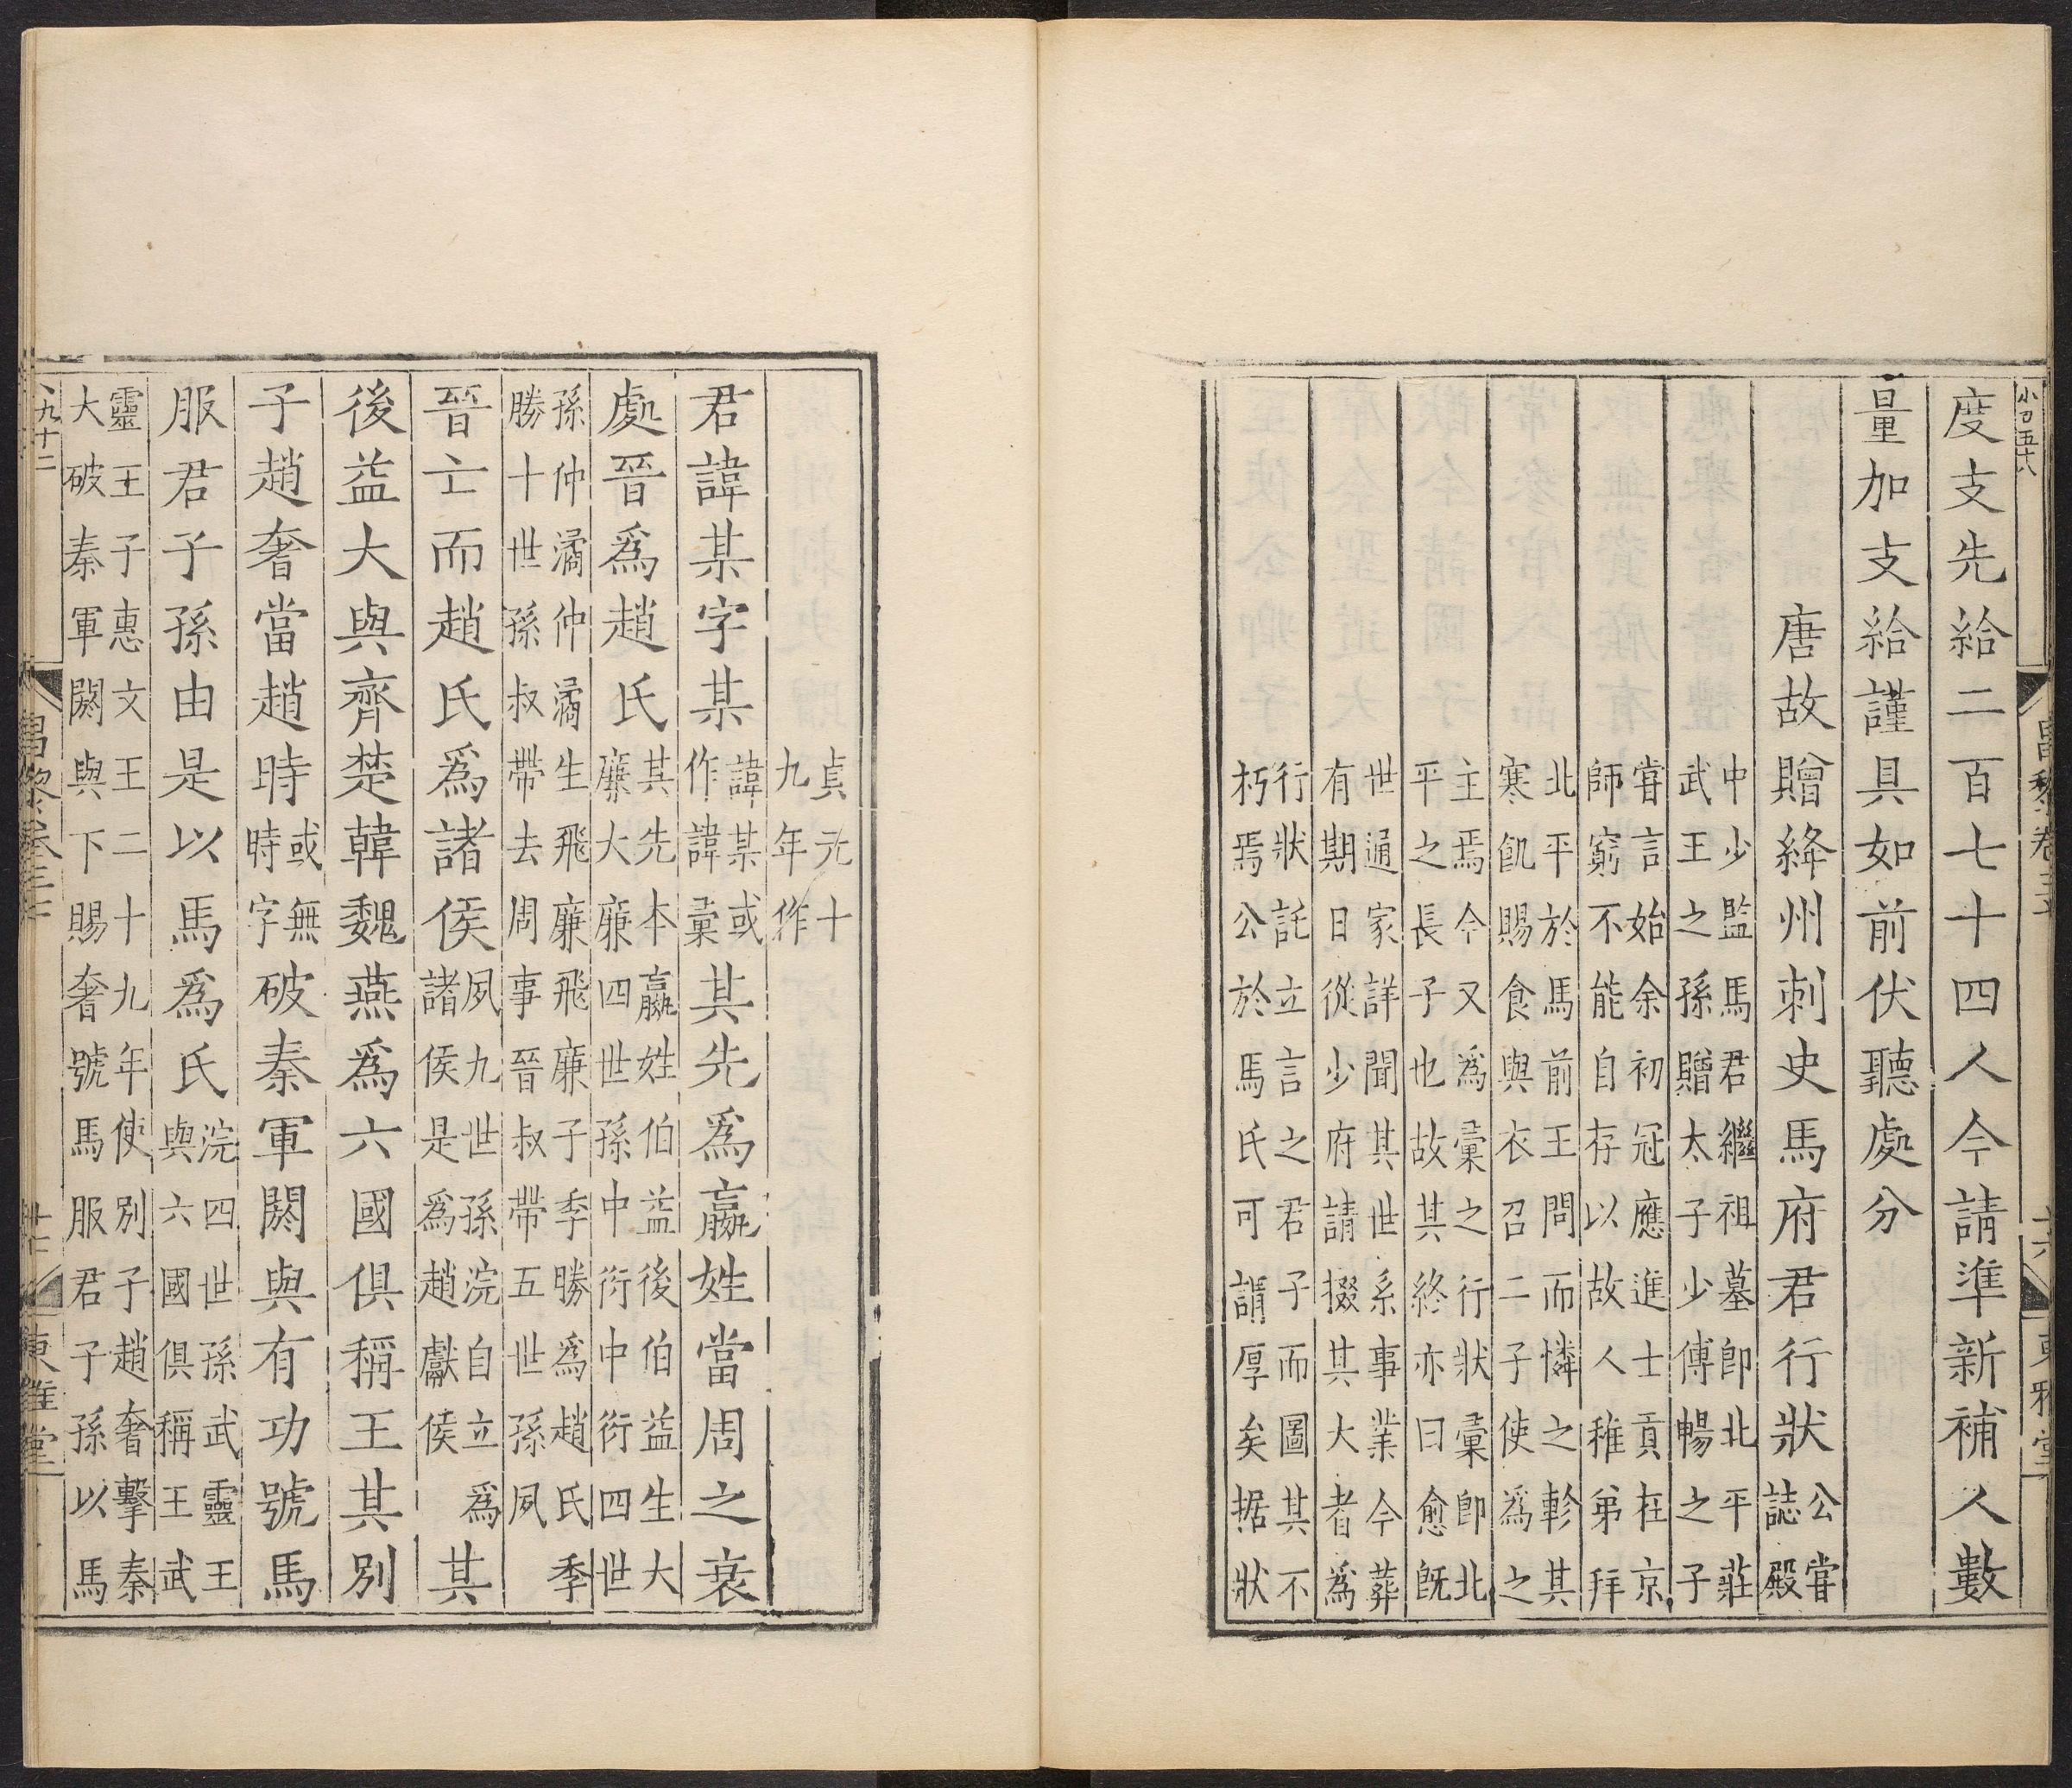 昌黎卷三十
東雅堂
度支先給二百七十四人今請準新補人數
量加支給謹具如前伏聽處分
唐故贈絳州刺史馬府君行狀公嘗誌殿
中少監馬君繼祖墓即北平莊
武王之孫贈太子少傅暢之子
嘗言始余初冠應進士貢在京
師窮不能自存以故人稚弟拜
北平於馬前王問而憐之軫其
寒飢賜食與衣召二子使爲之
主焉今又爲彚之行狀彚即北
平之長子也故其終亦曰愈既
世通家詳聞其世系事業今葬
有期日從少府請掇其大者爲
行狀託立言之君子而圖其不
朽焉公於馬氏可謂厚矣据狀
貞元十
九年作
君諱某字某諱某或作諱彚其先爲嬴姓當周之衰
處晉爲趙氏其先本嬴姓伯益後伯益生大廉大廉四世孫中衍中衍四世
孫仲潏仲潏生飛廉飛廉子季勝爲趙氏季
勝十世孫叔帶去周事晉叔帶五世孫夙
晉亡而趙氏爲諸侯夙九世孫浣自立爲諸侯是爲趙獻侯其
後益大與齊楚韓魏燕爲六國俱稱王其別
子趙奢當趙時或無時字破秦軍閼與有功號馬
服君子孫由是以馬爲氏浣四世孫武靈王與六國俱稱王武
靈王子惠文王二十九年使別子趙奢擊秦
大破秦軍閼與下賜奢號馬服君子孫以馬
昌黎卷三十
東雅堂